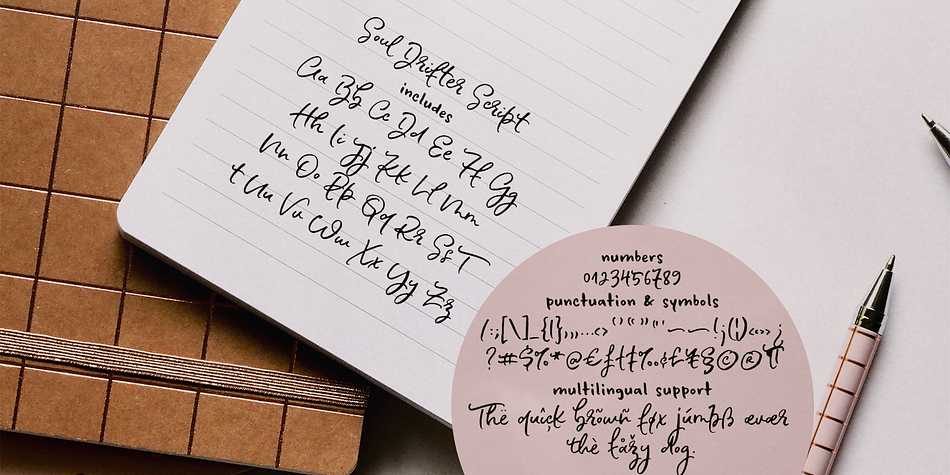 Soul Drifter Script
includes
Aa Bb Cc Dd Ee Ff Gg
Hh Ii Jj Kk Ll Mm
Nn Oo Pp Qq Rr Ss T
t Uu Vv Ww Xx Yy Zz
numbers
0123456789
punctuation & symbols
(:;[\]_{|},,,...<>'"“”‘’"'~—–!¡(|)«‹›»¿
?#$%*@€ƒ†‡‰¢£¥§©®¶
multilingual support
Thë quîçk brõwñ føx júmpß ævær
thè låžy dog.